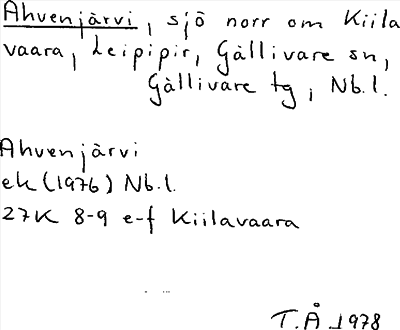 Ahvenjärvi, sjö norr om Kiila
vaara, Leipipir, Gällivare sn,
Gällivare tg, Nb.l.
Ahvenjärvi
ek (1976) Nb.l.
27K 8-9 e-f Kiilavaara
T.Å 1978